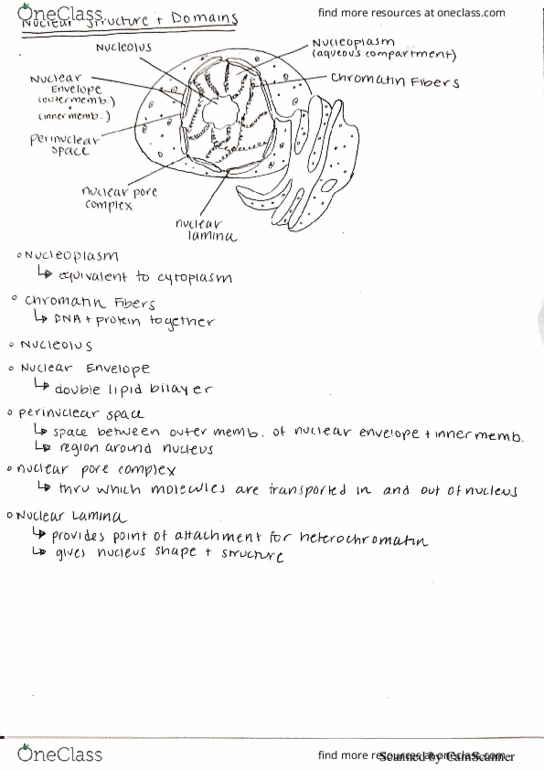 OneClass
find more resources at oneclass.com
Nuclear Structure + Domains
Nucleolus
Nucleoplasm
(aqueous compartment)
Chromatin Fibers
Nuclear
Envelope
(outer memb.)
+
(inner memb.)
perinuclear
space
nuclear pore
complex
nuclear
lamina
Nucleoplasm
↳ equivalent to cytoplasm
Chromatin Fibers
↳ DNA + protein together
Nucleolus
Nuclear Envelope
↳ double lipid bilayer
perinuclear space
↳ space between outer memb. of nuclear envelope + inner memb.
↳ region around nucleus
nuclear pore complex
↳ thru which molecules are transported in and out of nucleus
Nuclear Lamina
↳ provides point of attachment for heterochromatin
↳ gives nucleus shape + structure
OneClass
find more resources at oneclass.com
Scanned by CamScanner